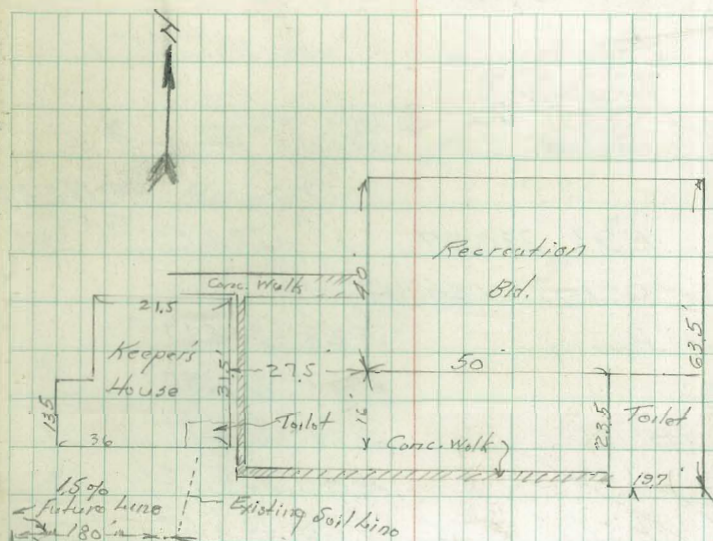 N
Recreation
Bld.
40'
63.5'
Conc. Walk
21.5
Keeper's
House
31.5'
27.5
50
13.5
36
Toilet
16'
Conc. Walk
23.5
Toilet
19.7
1.5%
Future Line
180'
Existing Soil Line